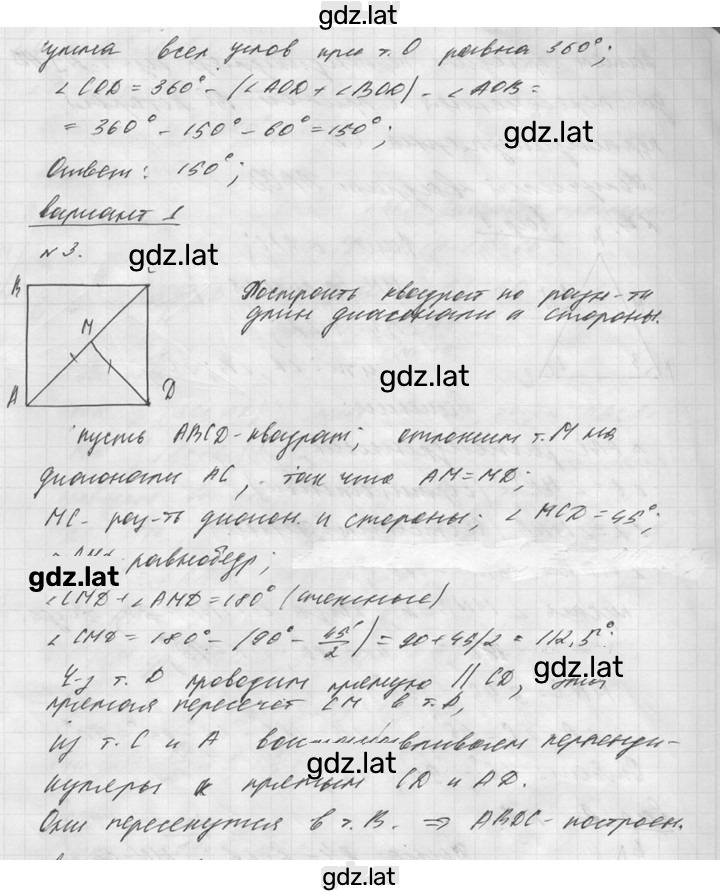 gdz.lat
сумма всех углов при т. О равна 360°;
∠COD = 360° - (∠AOD + ∠BOD) - ∠AOB =
= 360° - 150° - 60° = 150°;
gdz.lat
Ответ: 150°;
вариант 1
N 3.
gdz.lat
B C
M
A D
Построить квадрат по разн-ти
длин диагонали и стороны.
gdz.lat
пусть ABCD - квадрат; отложим т. M на
диагонали AC, так что AM = MD;
MC - раз-ть диагон. и стороны; ∠MCD = 45°;
равнобедр;
gdz.lat
∠CMD + ∠AMD = 180° (смежные)
∠CMD = 180° - (90° - 45°/2) = 90 + 45/2 = 112,5°
gdz.lat
Ч-з т. D проводим прямую || CD, эта
прямая пересечет CM в т. A,
из т. C и A восстанавливаем перпенди-
gdz.lat
куляры к прямым CD и AD.
Они пересекутся в т. B. ⇒ ABDC - построен.
gdz.lat